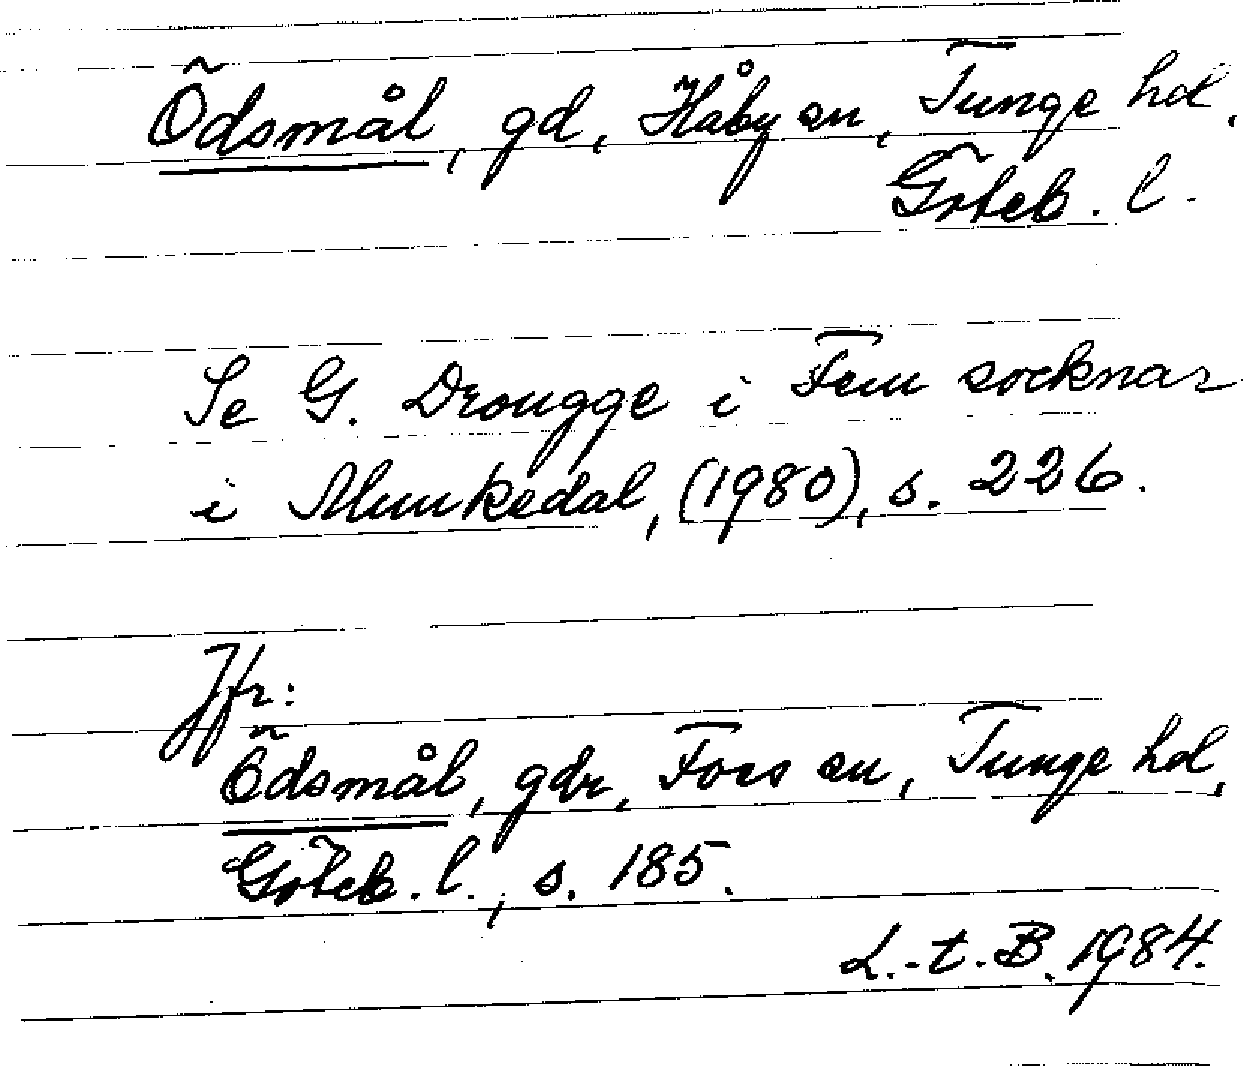 Ödsmål, gd, Håby sn, Tunge hd,
Göteb. l.
Se G. Drougge i Fem socknar
i Munkedal, (1980), s. 226.
Jfr:
Ödsmål, gdr, Foss sn, Tunge hd,
Göteb. l., s. 185.
L.-t. B. 1984.